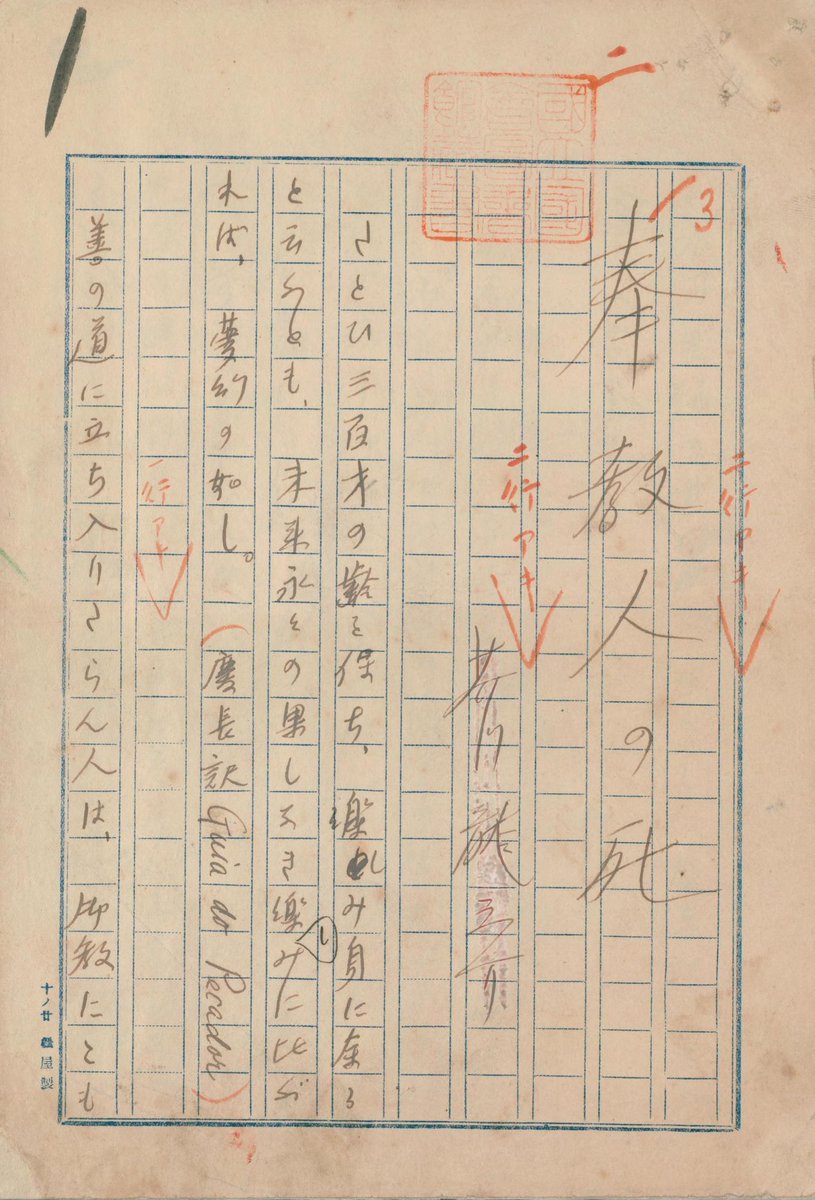 二
3
二行アキ
奉教人の死
二行アキ
芥川龍之介
たとひ三百才の齢を保ち、楽しみ身に余る
と云ふとも、未来永々の果しなき楽しみに比ぶ
れば、夢幻の如し。(慶長訳 Guia do Pecador)
一行アキ
善の道に立ち入りたらん人は、御教にこも
十ノ廿 松屋製
國立國會圖書館藏書